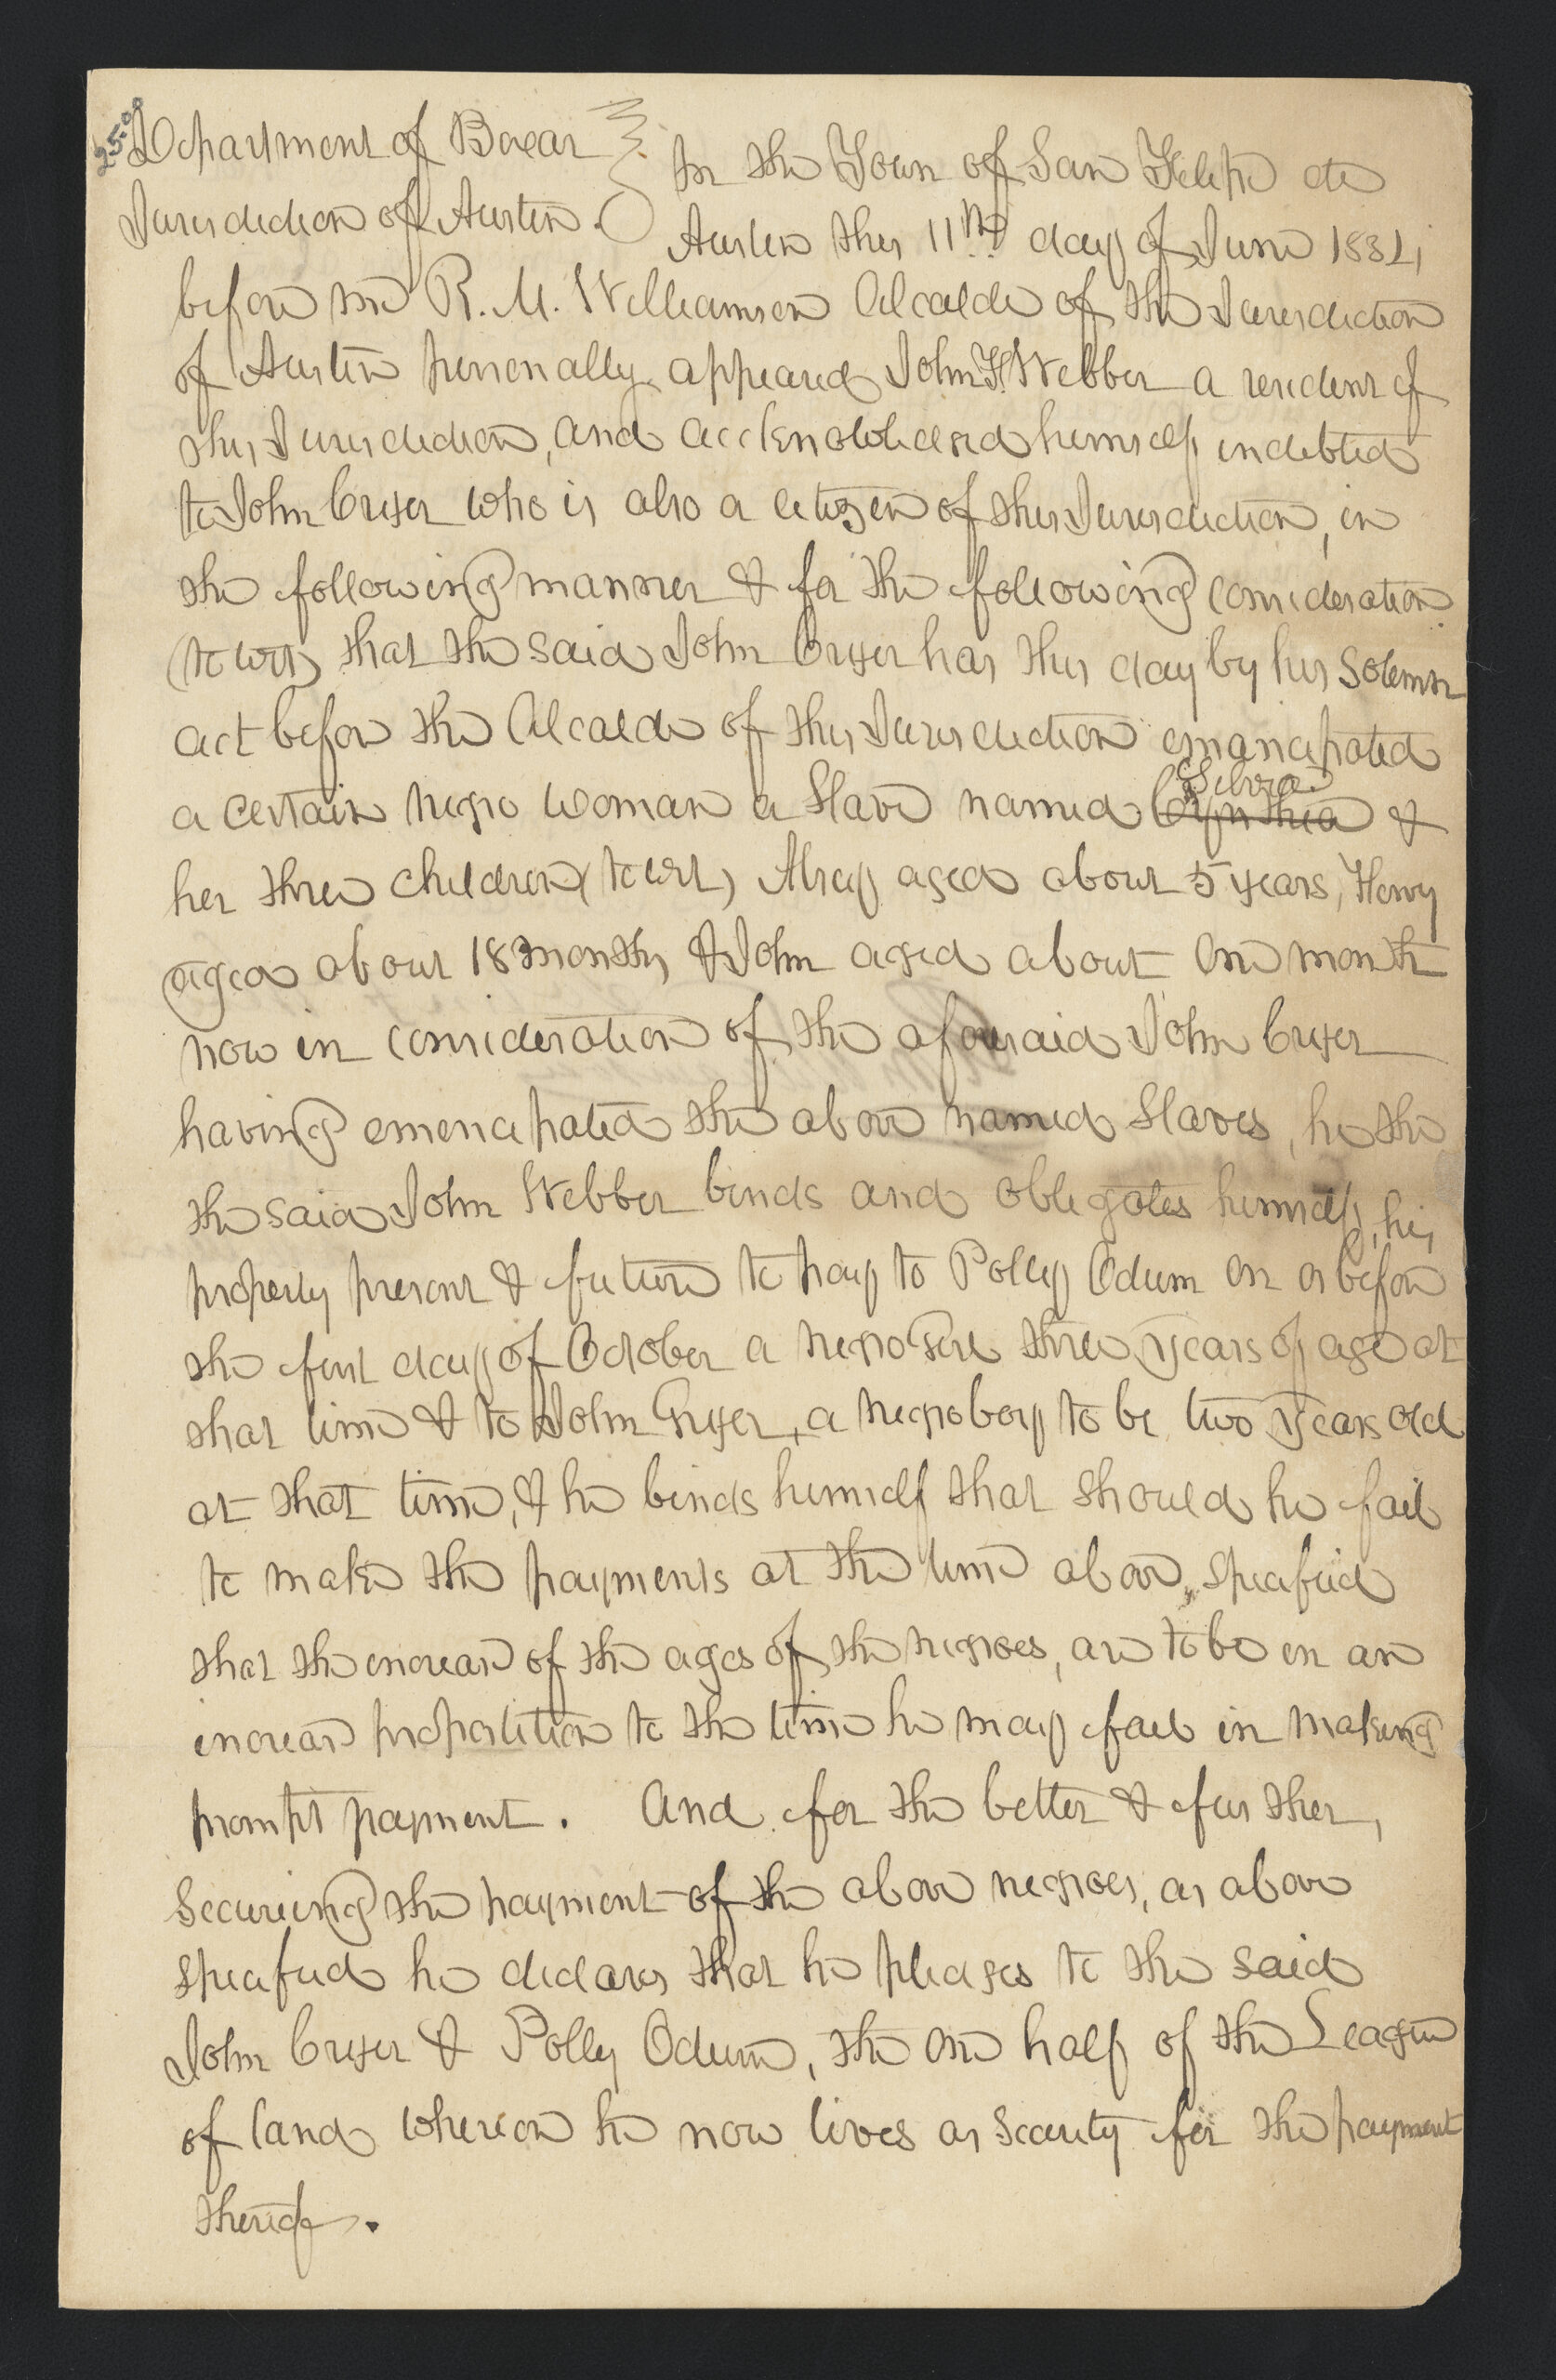 25.00
Department of Bexar
Jurisdiction of Austin.
In the Town of San Felipe de
Austin this 11th day of June 1834
before me R. M. Williamson Alcalde of the Jurisdiction
of Austin personally appeared John F. Webber a resident of
this Jurisdiction, and acclknowledged himself indebted
to John Cryer who is also a citizen of this Jurisdiction, in
the following manner & for the following consideration
(to wit) that the said John Cryer has this day by his Solemn
act before the Alcalde of this Jurisdiction emancipated
Silvia
a certain negro woman a Slave named Cynthia &
her three children (to wit) Alsey aged about 5 years, Henry
aged about 18 months, & John aged about One month
now in consideration of the aforesaid John Cryer
having emencipated the above named Slaves, he the
the said John Webber binds and obligates himself, his
property present & future to pay to Polly Odum on or before
the first day of October a negro Girl three years of age at
that time & to John Cryer, a negro boy to be two years old
at that time, & he binds himself that should he fail
to make the payments at the time above specified
that the increase of the ages of the negroes, are to be in an
increase proportition to the time he may fail in making
prompt payment. And for the better & further,
Secureing the payment of the above negroes, as above
specified he declares that he pledges to the said
John Cryer & Polly Odum, the one half of the League
of land whereon he now lives as Security for the payment
thereof.